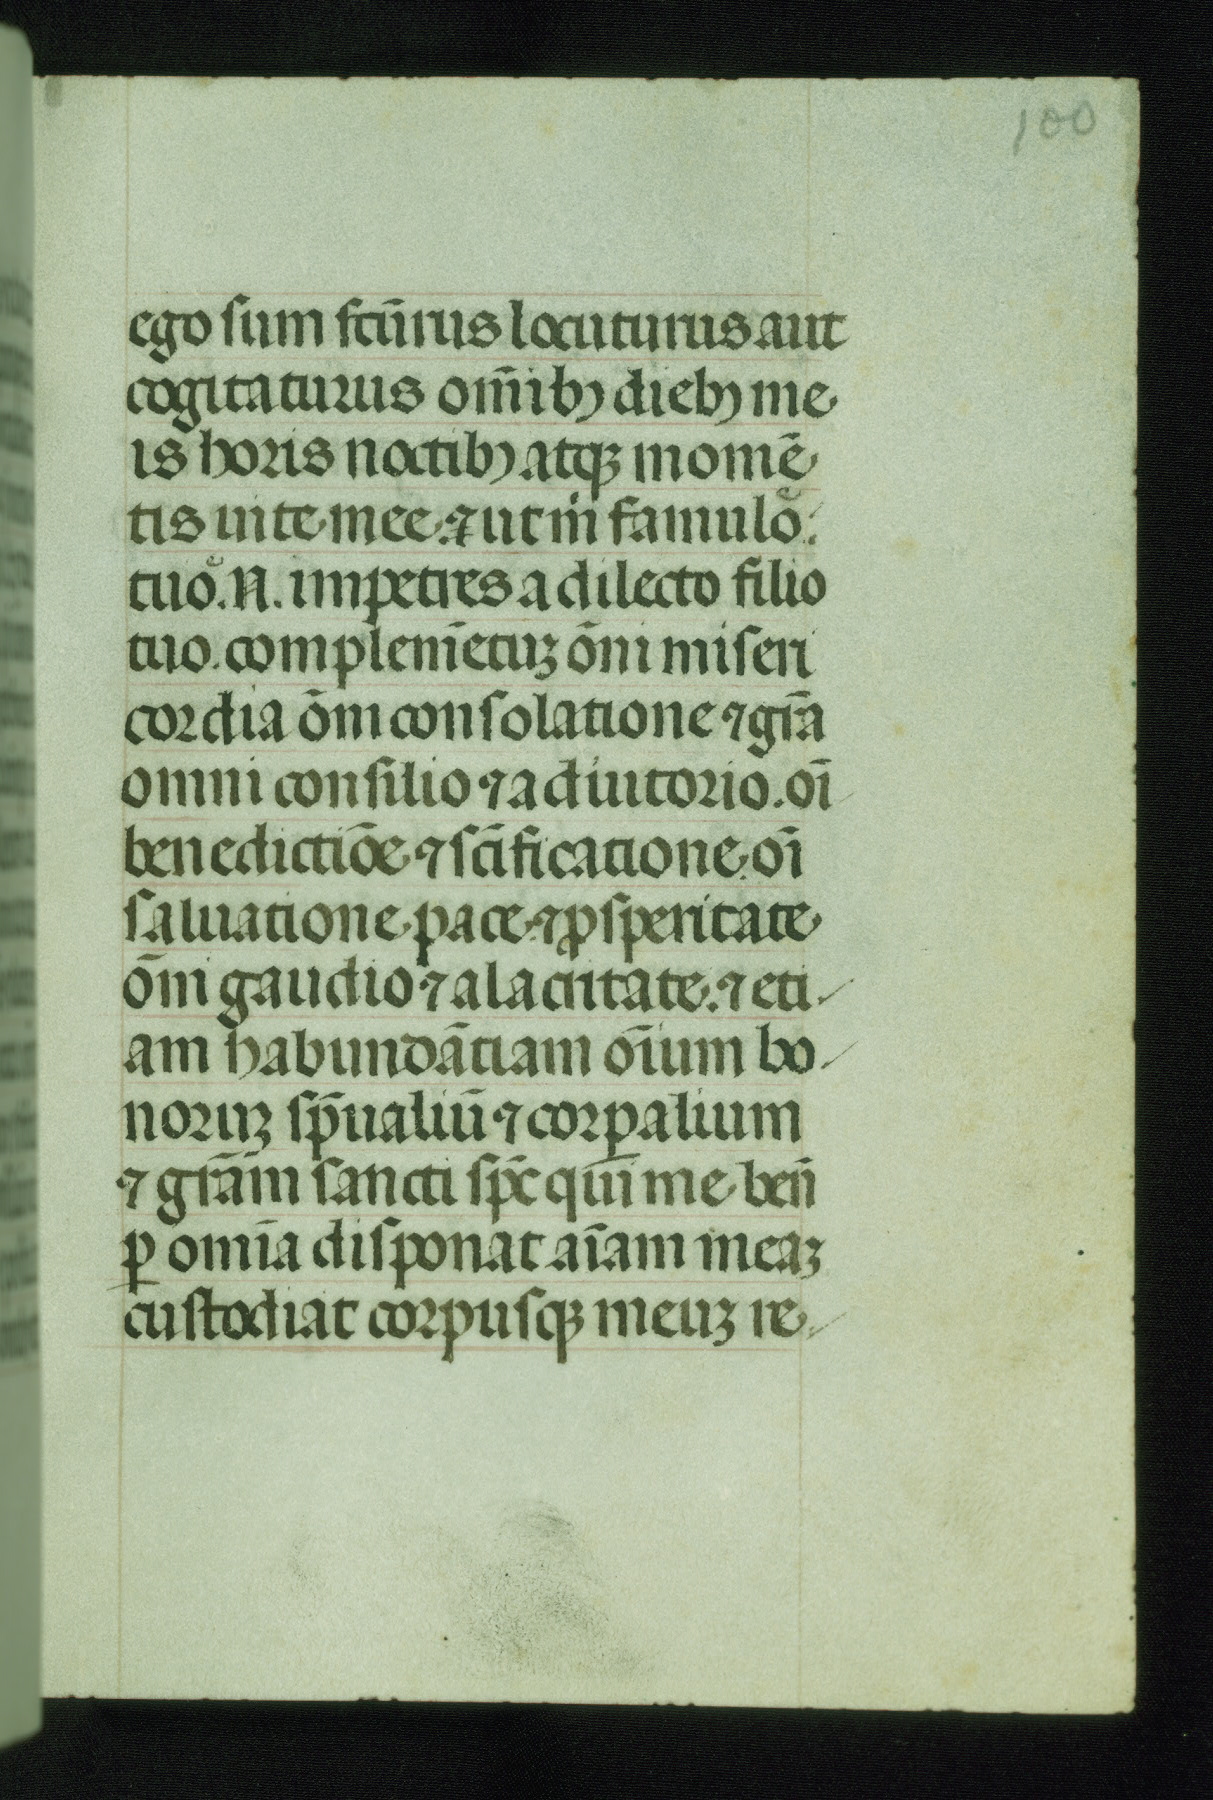 100
ego sum fcūrus locuturus aut
cogitaturus om̄ibꝫ diebꝫ me
is horis noctibꝫ atqꝫ momē
tis uite mee. ⁊ ut m̄ famulo
tuo. N. impetres a dilecto filio
tuo. complem̄etuꝫ ōni miseri
cordia ōni consolatione ⁊ gr̄a
omni consilio ⁊ adiutorio. oī
benedictiōe ⁊ sc̄ificatione oī
saluatione pace ⁊ ꝓsperitate
ōni gaudio ⁊ alacritate. ⁊ eti
am habundātiam oīum bo
noruꝫ sp̄ualiū ⁊ corꝑalium
⁊ gr̄am sancti sp̄c qui me ben̄
ꝑ omīa disponat aīam meaꝫ
custodiat corpusqꝫ meuꝫ re